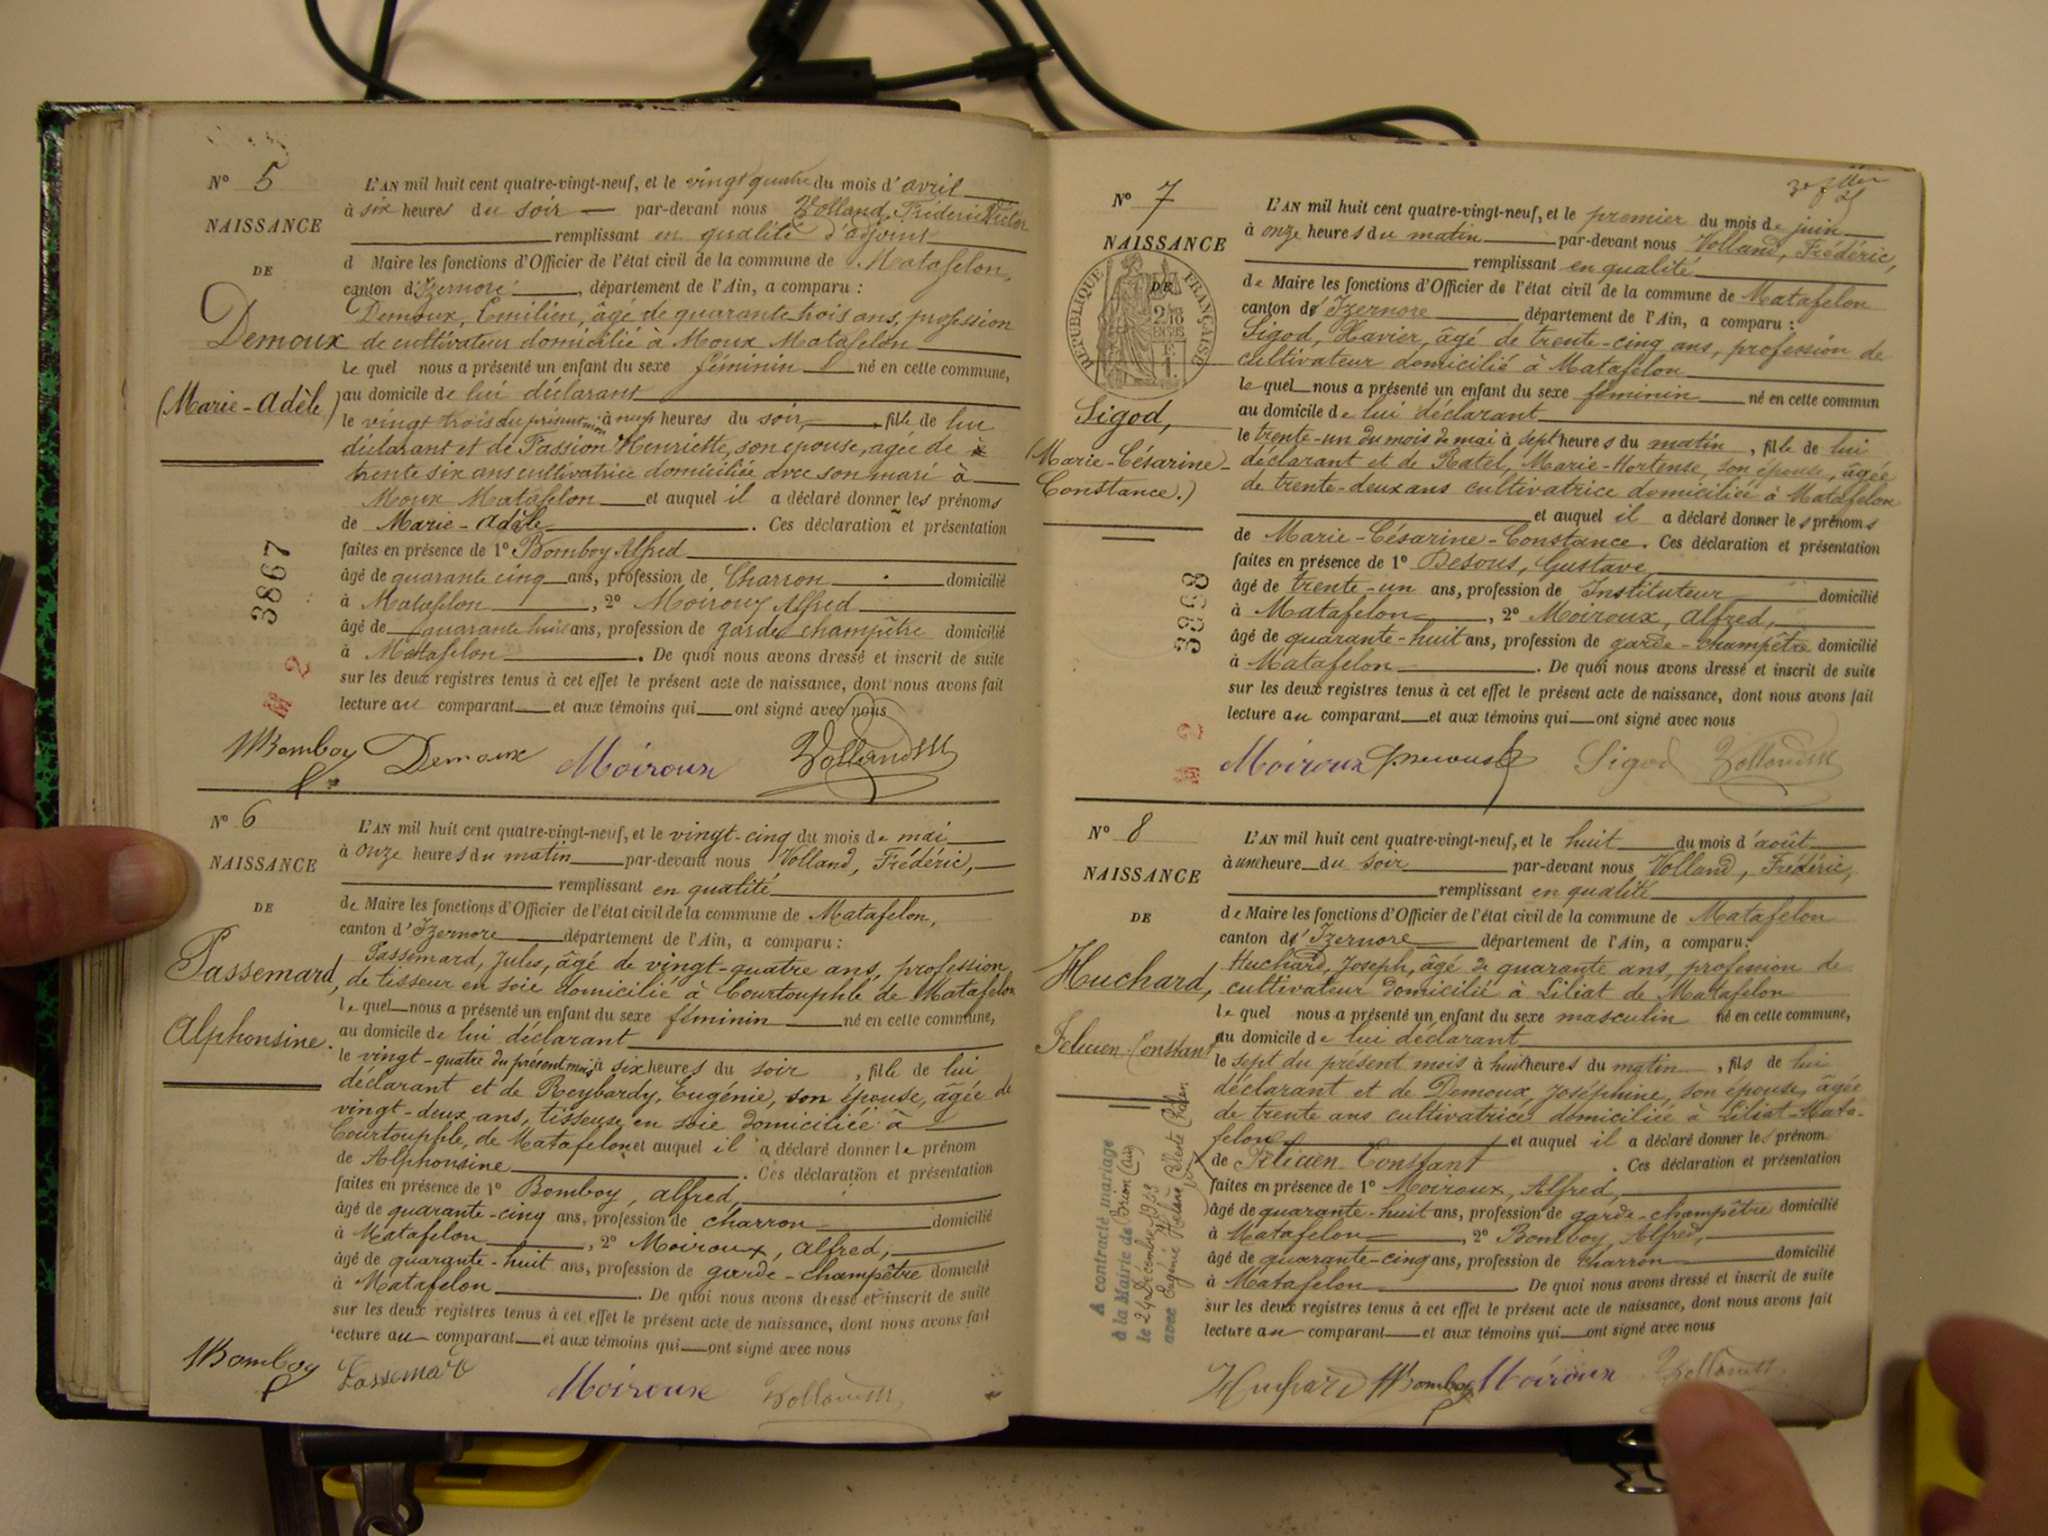 N° 5
NAISSANCE
DE
Demoux
(Marie-Adèle)
3867
M 2
L'AN mil huit cent quatre-vingt-neuf, et le vingt quatre du mois d'avril
à six heures du soir par-devant nous Volland, Frédéric Victor
remplissant en qualité d'adjoint
d Maire les fonctions d'Officier de l'état civil de la commune de Matafelon,
canton d'Izernore, département de l'Ain, a comparu :
Demoux, Emilien, âgé de quarante-trois ans, profession
de cultivateur domicilié à Moux Matafelon
le quel nous a présenté un enfant du sexe féminin né en cette commune,
au domicile de lui déclarant
le vingt trois du présent mois à neuf heures du soir, fille de lui
déclarant et de Passion Henriette, son épouse, agée de
trente six ans cultivatrice domiciliée avec son mari à
Moux Matafelon et auquel il a déclaré donner les prénoms
de Marie-Adèle. Ces déclaration et présentation
faites en présence de 1° Bomboy Alfred
âgé de quarante cinq ans, profession de Charron domicilié
à Matafelon, 2° Moiroux Alfred
âgé de quarante huit ans, profession de garde champêtre domicilié
à Matafelon. De quoi nous avons dressé et inscrit de suite
sur les deux registres tenus à cet effet le présent acte de naissance, dont nous avons fait
lecture au comparant et aux témoins qui ont signé avec nous
Bomboy Demoux Moiroux Volland
N° 6
NAISSANCE
DE
Passemard,
Alphonsine.
L'AN mil huit cent quatre-vingt-neuf, et le vingt-cinq du mois de mai
à onze heures du matin par-devant nous Volland, Frédéric,
remplissant en qualité
de Maire les fonctions d'Officier de l'état civil de la commune de Matafelon,
canton d'Izernore département de l'Ain, a comparu :
Passemard, Jules, âgé de vingt-quatre ans, profession
de tisseur en soie domicilié à Courtouphle de Matafelon
le quel nous a présenté un enfant du sexe féminin né en cette commune,
au domicile de lui déclarant
le vingt-quatre du présent mois à six heures du soir, fille de lui
déclarant et de Reybardy, Eugénie, son épouse, âgée de
vingt-deux ans, tisseuse en soie domiciliée à
Courtouphle, de Matafelon et auquel il a déclaré donner le prénom
de Alphonsine. Ces déclaration et présentation
faites en présence de 1° Bomboy, alfred,
âgé de quarante-cinq ans, profession de charron domicilié
à Matafelon, 2° Moiroux, alfred,
âgé de quarante-huit ans, profession de garde-champêtre domicilié
à Matafelon. De quoi nous avons dressé et inscrit de suite
sur les deux registres tenus à cet effet le présent acte de naissance, dont nous avons fait
lecture au comparant et aux témoins qui ont signé avec nous
Bomboy Passemard Moiroux Volland
N° 7
NAISSANCE
DE
RÉPUBLIQUE FRANÇAISE
Sigod,
(Marie-Césarine-
Constance.)
3868
M 2
L'AN mil huit cent quatre-vingt-neuf, et le premier du mois de juin
à onze heures du matin par-devant nous Volland, Frédéric,
remplissant en qualité
de Maire les fonctions d'Officier de l'état civil de la commune de Matafelon
canton d'Izernore département de l'Ain, a comparu :
Sigod, Xavier, âgé de trente-cinq ans, profession de
cultivateur domicilié à Matafelon
le quel nous a présenté un enfant du sexe féminin né en cette commun
au domicile de lui déclarant
le trente-un du mois de mai à sept heures du matin, fille de lui
déclarant et de Ratel, Marie-Hortense, son épouse, âgée
de trente-deux ans cultivatrice domiciliée à Matafelon
et auquel il a déclaré donner les prénoms
de Marie-Césarine-Constance. Ces déclaration et présentation
faites en présence de 1° Gustave
âgé de trente-un ans, profession de Instituteur domicilié
à Matafelon, 2° Moiroux, alfred,
âgé de quarante-huit ans, profession de garde-champêtre domicilié
à Matafelon. De quoi nous avons dressé et inscrit de suite
sur les deux registres tenus à cet effet le présent acte de naissance, dont nous avons fait
lecture au comparant et aux témoins qui ont signé avec nous
Moiroux Sigod Volland
N° 8
NAISSANCE
DE
Huchard,
Felicien Constant
A contracté mariage
à la Mairie de Brion (Ain)
le 24 Décembre 19
avec Eugénie
L'AN mil huit cent quatre-vingt-neuf, et le huit du mois d'août
à une heure du soir par-devant nous Volland, Frédéric,
remplissant en qualité
de Maire les fonctions d'Officier de l'état civil de la commune de Matafelon
canton d'Izernore département de l'Ain, a comparu:
Huchard, Joseph, âgé de quarante ans, profession de
cultivateur domicilié à Siliat de Matafelon
le quel nous a présenté un enfant du sexe masculin né en cette commune,
au domicile de lui déclarant
le sept du présent mois à huit heures du matin, fils de lui
déclarant et de Demoux, Joséphine, son épouse, âgée
de trente ans cultivatrice domiciliée à Siliat-Mata-
felon et auquel il a déclaré donner les prénom
de Félicien Constant. Ces déclaration et présentation
faites en présence de 1° Moiroux, Alfred,
âgé de quarante-huit ans, profession de garde-champêtre domicilié
à Matafelon, 2° Bomboy, Alfred,
âgé de quarante-cinq ans, profession de charron domicilié
à Matafelon. De quoi nous avons dressé et inscrit de suite
sur les deux registres tenus à cet effet le présent acte de naissance, dont nous avons fait
lecture au comparant et aux témoins qui ont signé avec nous
Huchard Bomboy Moiroux Volland